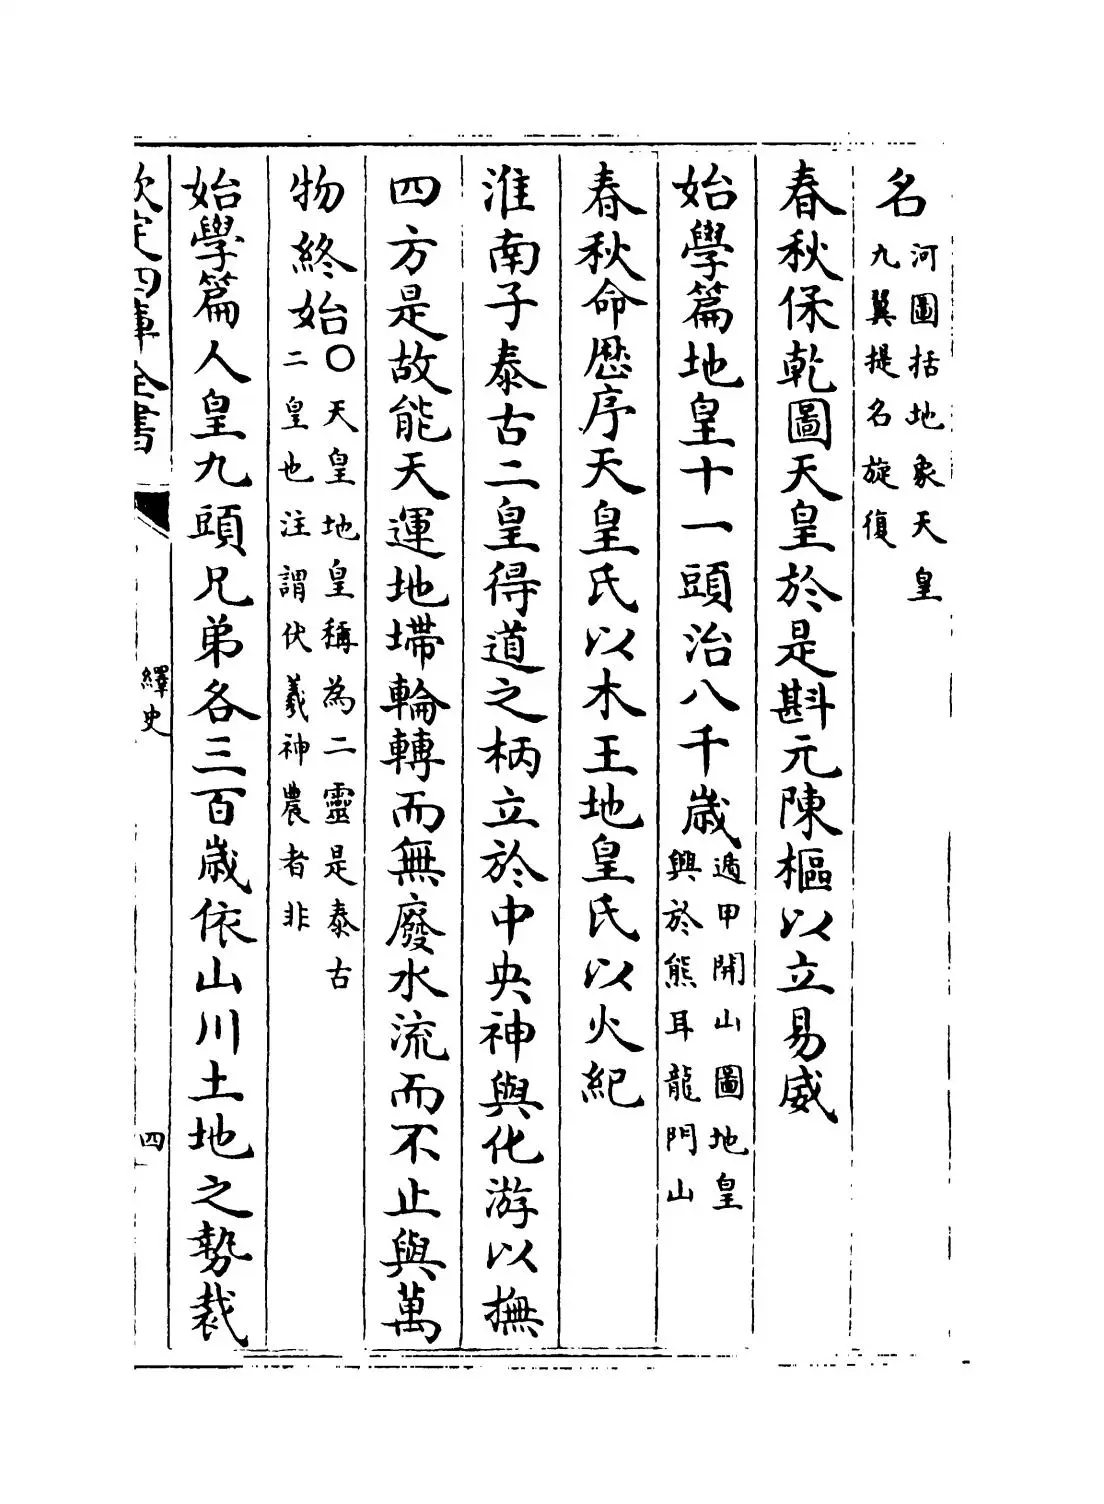 名河圖括地象天皇
九翼提名旋復
春秋保乾圖天皇於是斟元陳樞以立易威
始學篇地皇十一頭治八千歲遁甲開山圖地皇
興於熊耳龍門山
春秋命厯序天皇氏以木王地皇氏以火紀
淮南子泰古二皇得道之柄立於中央神與化游以撫
四方是故能天運地墆輪轉而無廢水流而不止與萬
物終始〇天皇地皇稱為二靈是泰古
二皇也注謂伏羲神農者非
始學篇人皇九頭兄弟各三百歲依山川土地之勢裁
欽定四庫全書
繹史
四